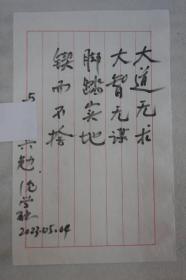 大道无求
大智无谋
脚踏实地
锲而不捨
与
共勉
2023.05.04